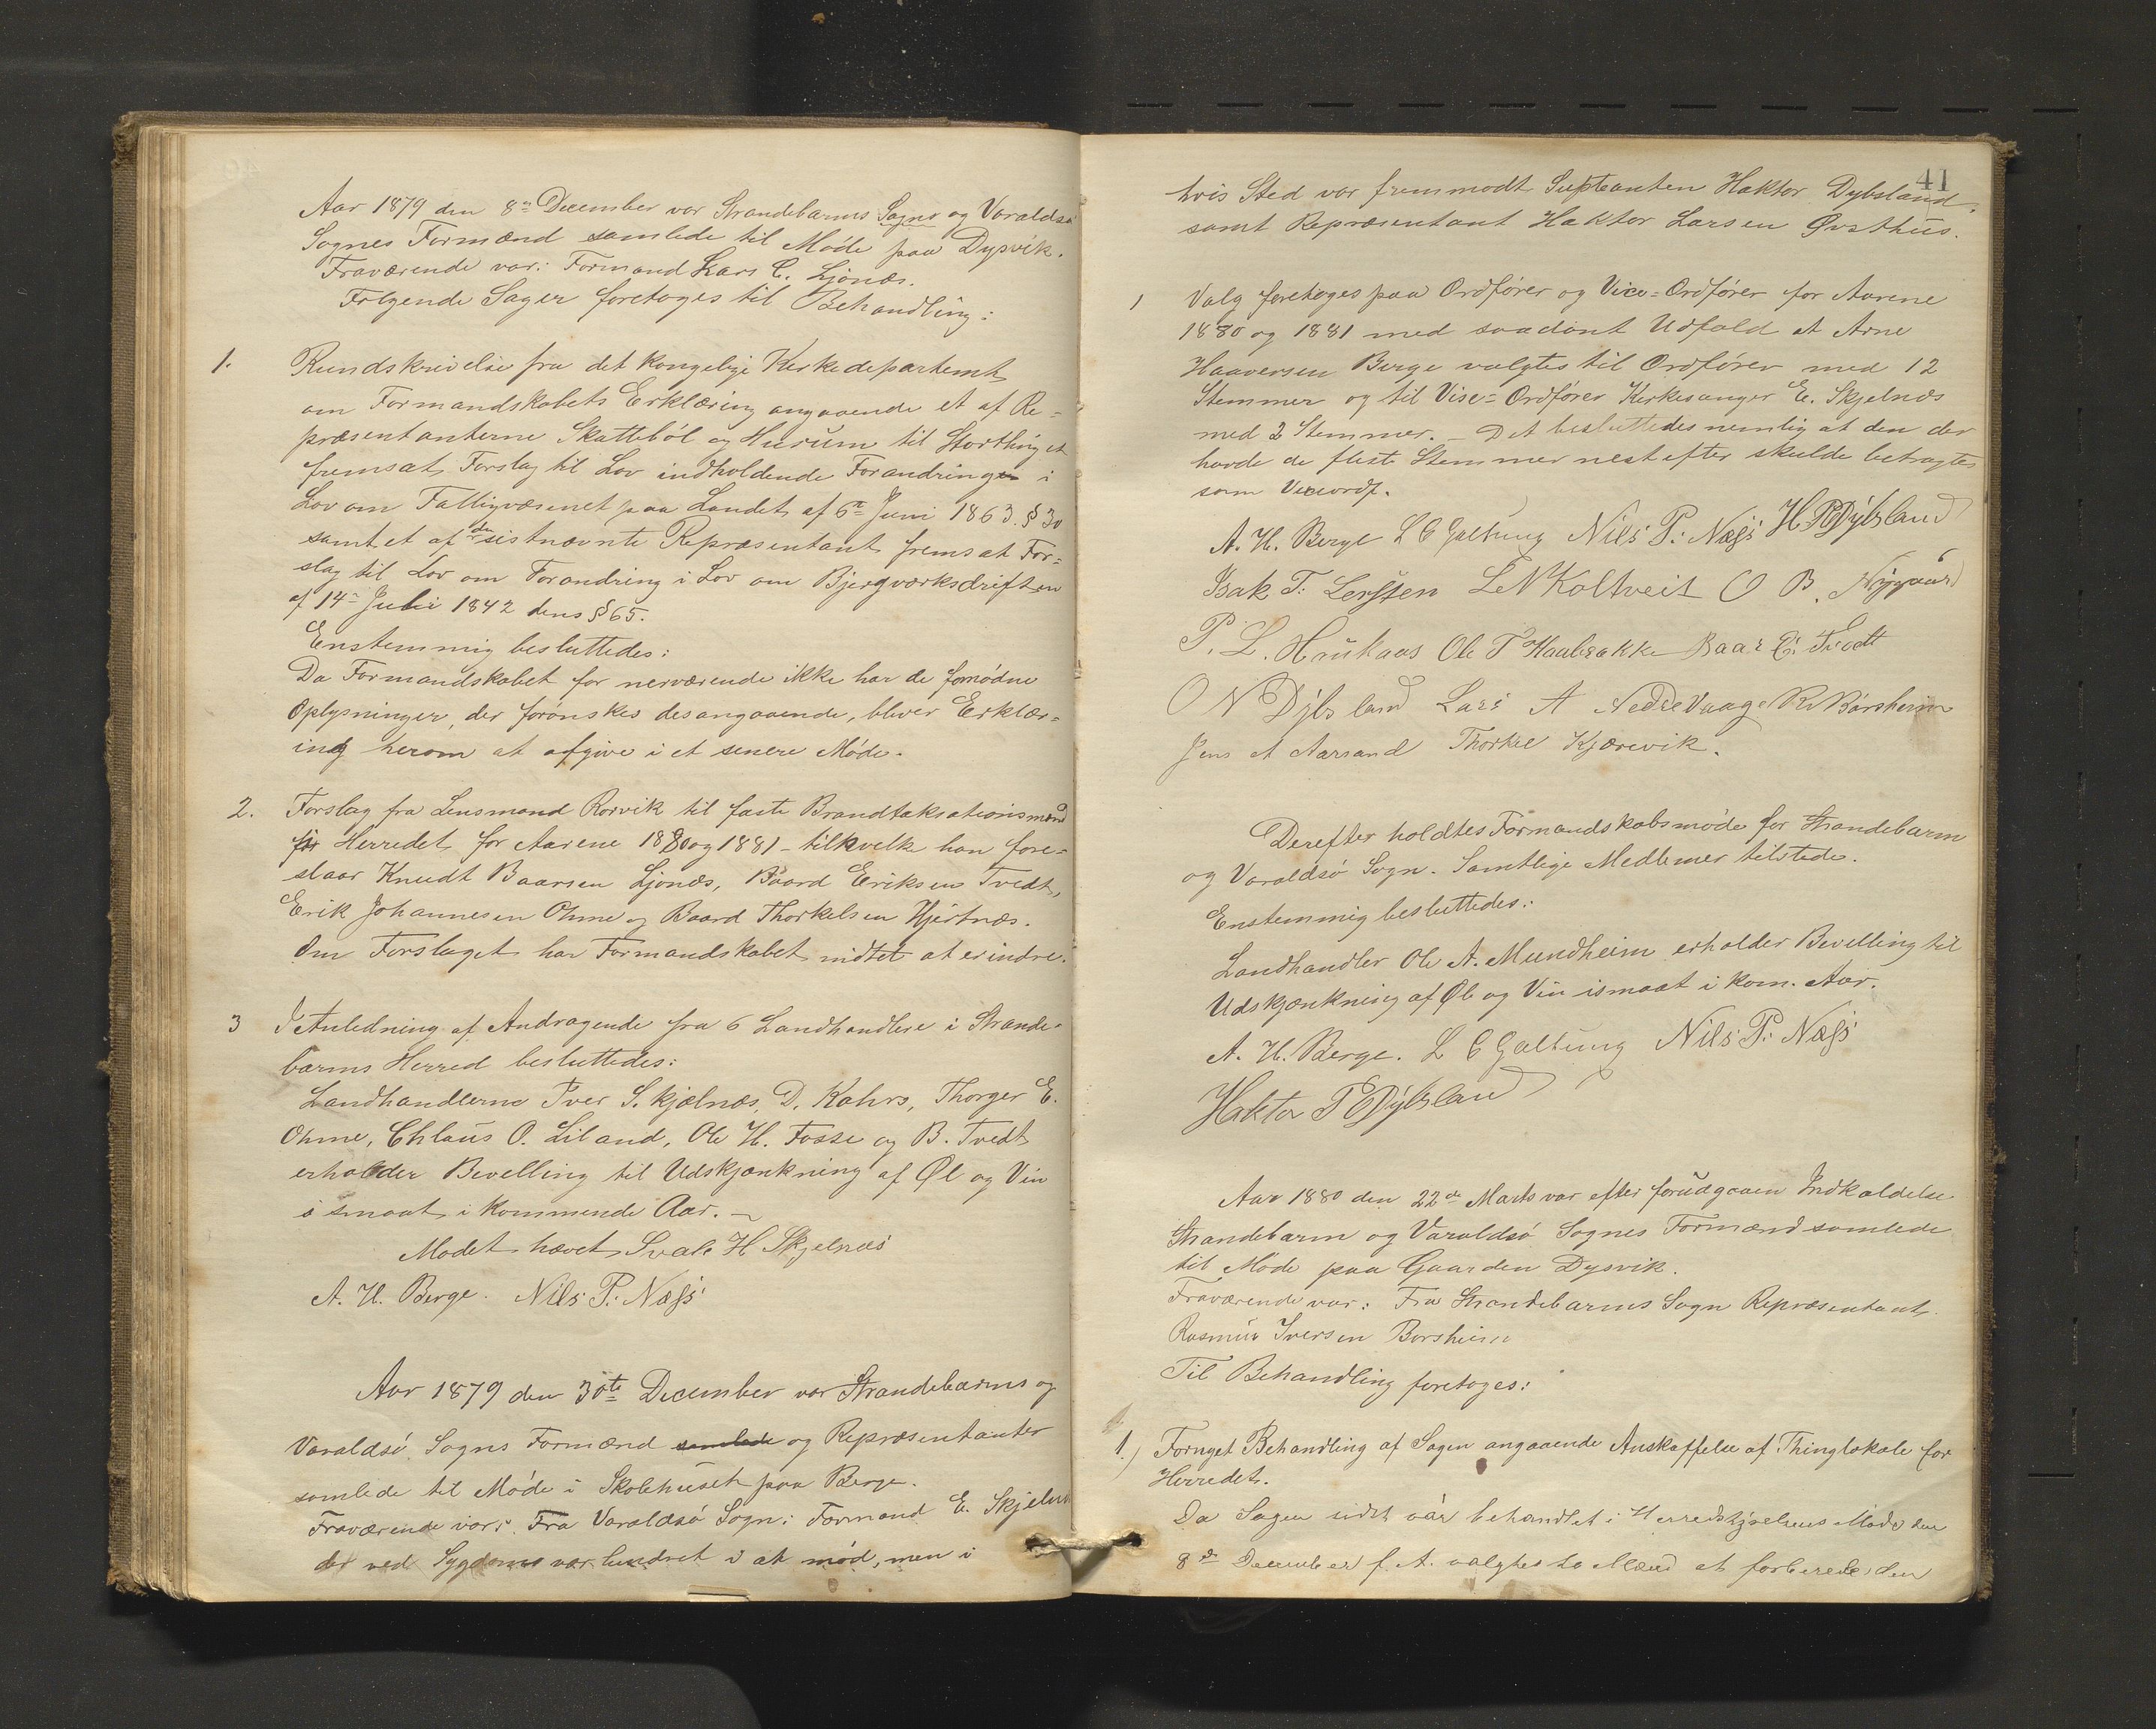 Aar 1879 den 8de December var Strandebarms Sogns og Varaldsø
Sognes Formænd samlede til Møde paa Dysvik.
Fraværende var: Formand Lars C. Ljonæs.
Følgende Sager foretoges til Behandling:
1. Rundskrivelse fra det kongelige Kirkedepartemt
om Formandskabets Erklæring angaaende et af Re=
præsentanterne Skattebøl og Hurum til Storthinget
fremsat Forslag til Lov indholdende Forandringer i
Lov om Fattigvæsenet paa Landet af 6te Juni 1863. § 30
samt et af den sistnævnte Repræsentant fremsat For=
slag til Lov om Forandring i Lov om Bjergværksdriften
af 14de Juli 1842 dens § 65.
Enstemmig besluttedes:
Da Formandskabet for nerværende ikke har de fornødne
Oplysninger, der forønskes desangaaende, bliver Erklær=
ing herom at afgive i et senere Møde.
2. Forslag fra Lensmand Rørvik til faste Brandtaksationsmænd
for Herredet for Aarene 1880 og 1881 - til hvilke han fore=
slaar Knudt Baarsen Ljonæs, Baard Eriksen Tvedt,
Erik Johannesen Ohme og Baard Thorkelsen Hjertnæs.
Om Forslaget har Formandskabet indtet at erindre.
3 I Anledning af Andragende fra 6 Landhandlere i Strande-
barms Herred besluttedes:
Landhandlerne Iver S. kjælnæs, D. Kahrs, Thorger E.
Ohme, Chlaus O. Liland, Ole H. Fosse og B. Tvedt
erholder Bevelling til Udskjænkning af Øl og Vin
i smaat i kommende Aar. -
Mødet hævet Svale H Skjelnæs
A. H. Berge. Nils P. Næss
Aar 1879 den 30te December var Strandebarms og
Varaldsø Sogns Formænd samlede og Repræsentanter
samlede til Møde i Skolehuset paa Berge.
Fraværende var: Fra Varaldsø Sogn: Formand E. Skjelnæs
der ved Sygdoms var hindret i at mød, men i
41
hvis Sted var fremmødt Supleanten Haktor Dybsland,
samt Repræsentant Haktor Larsen Øvsthus.
1 Valg foretoges paa Ordfører og Vice=Ordfører for Aarene
1880 og 1881 med saadant Udfald at Arne
Haaversen Berge valgtes til Ordfører med 12
Stemmer og til Vise=Ordfører Kirkesanger E. Skjelnæs
med 2 Stemmer. - Det besluttedes nemlig at den der
havde de fleste Stemmer nest efter skulde betragtes
som Viceordf.
A. H. Berge L C Galtung Nils P. Næss H P Dybsland
Isak T. Lerssen L N Koltveit O B. Nygaard
P. L. Haukaas Ole T Haabrække Baar E. Tvedt
O N Dybsland Lars A Nedre Vaage R. Børsheim
Jens A Aarsand Thorkel Kjærevik.
Derefter holdtes Formandskabsmøde for Strandebarm
og Varaldsø Sogn. Samtlige Medlemer tilstede.
Enstemmig besluttedes:
Landhandler Ole A. Mundheim erholder Bevelling til
Udskjænkning af Øl og Vin ismaat i kom. Aar.
A. H. Berge. L C Galtung Nils P. Næss
Haktor P Dybsland
Aar 1880 den 22de Marts var efter forudgaaen Indkaldelse
Strandebarm og Varaldsø Sognes Formænd samlede
til Møde paa Gaarden Dysvik.
Fraværende var: Fra Strandebarms Sogn Repræsentant
Rasmus Iversen Børsheim
Til Behandling foretoges:
1.) Fornyet Behandling af Sagen angaaende Anskaffelse af Thinglokale for
Herredet.
Da Sagen sidst var behandlet i Herredstyrelsens Møde den
8de December f. A. valgtes to Mænd at forberede den